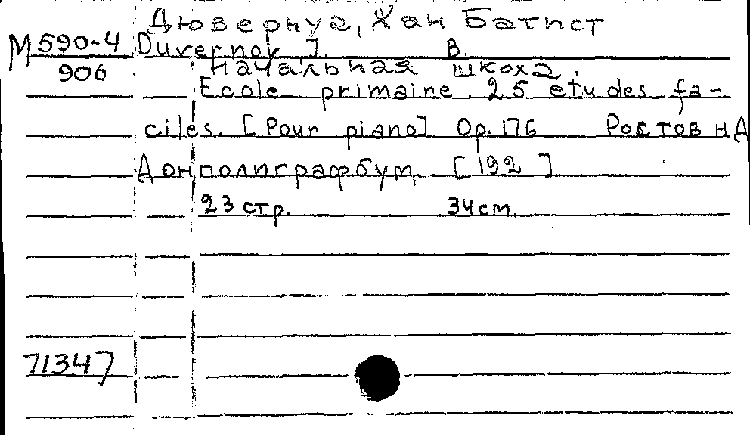 Дювернуа, Жан Батист
М 590-4 Duvernoy J. B.
906 Начальная школа.
Ecole primaine 25 etudes fa-
ciles. [Pour piano] Op. 176 Ростов н/Д
Донполиграфбум, [192 ]
23 стр. 34 см.
71347